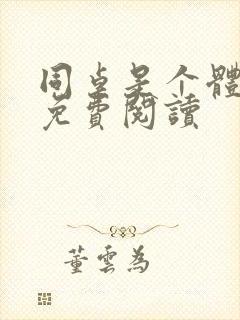 同桌是个體
免費閱讀
董雲為